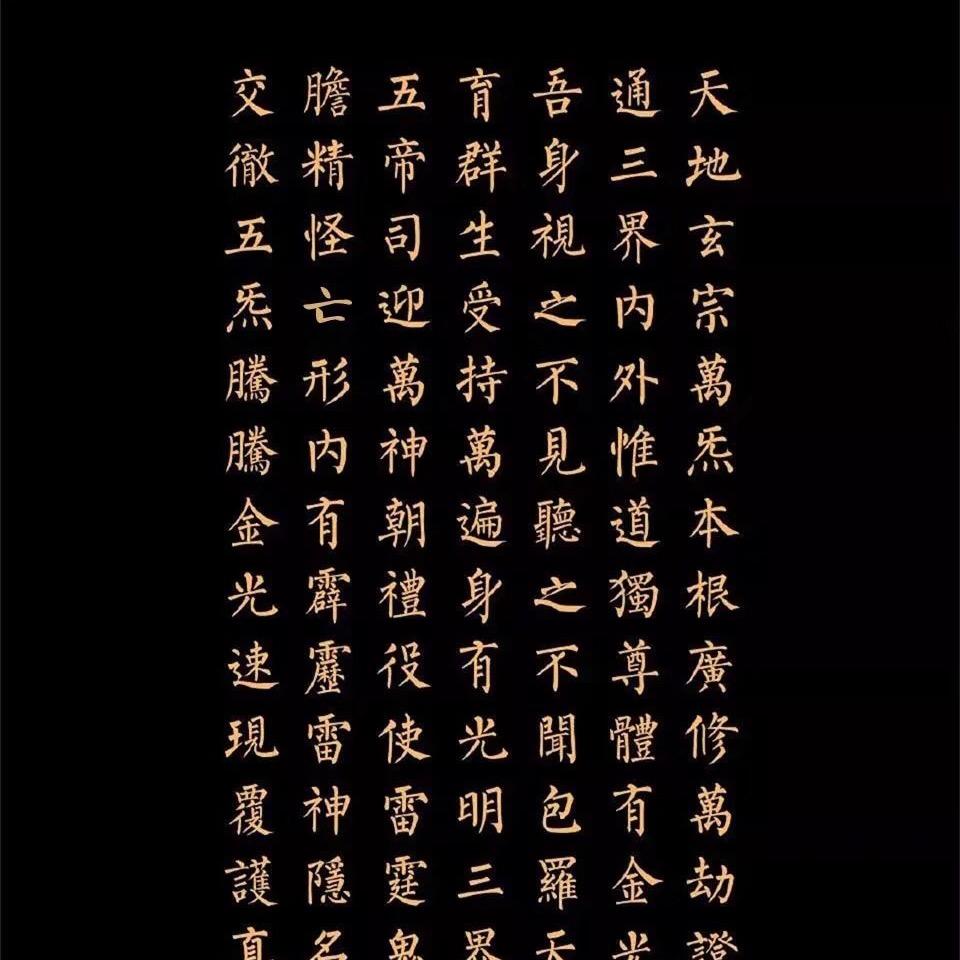 天地玄宗萬炁本根廣修萬劫證
通三界內外惟道獨尊體有金光
吾身視之不見聽之不聞包羅天
育群生受持萬遍身有光明三界
五帝司迎萬神朝禮役使雷霆鬼
膽精怪亡形内有霹靂雷神隱名
交徹五炁騰騰金光速現覆護真